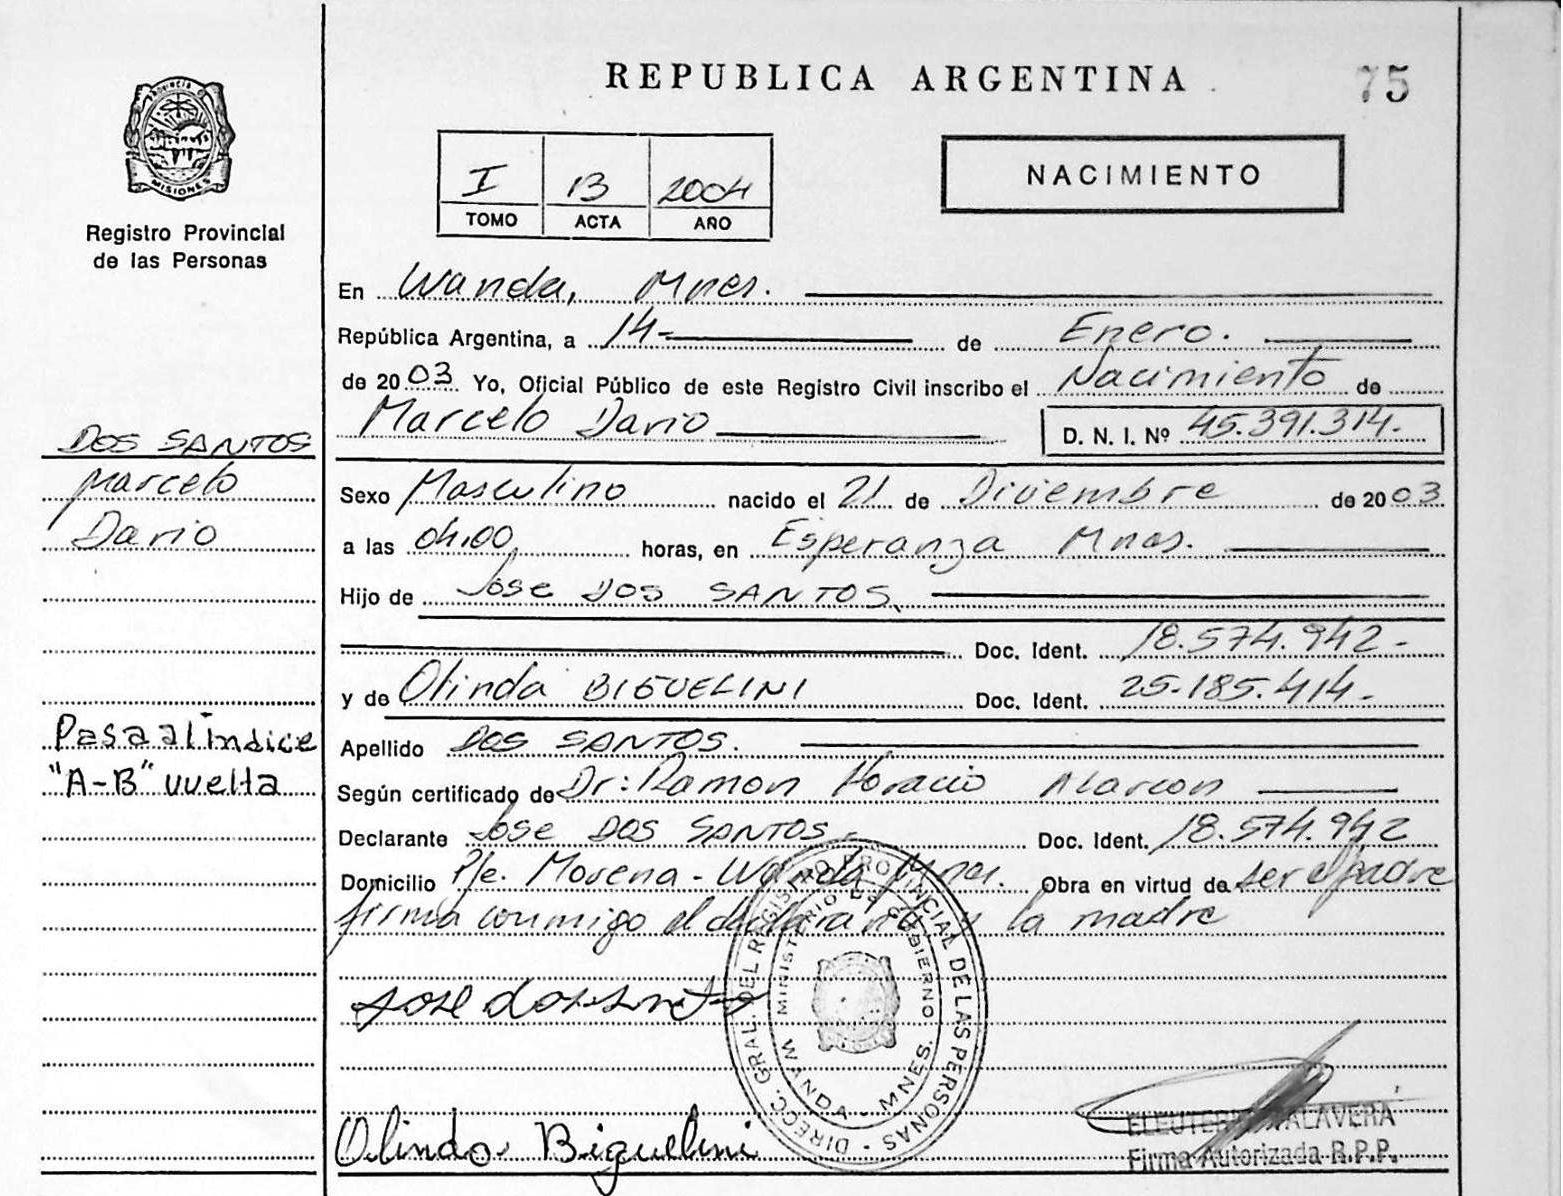 REPUBLICA ARGENTINA
75
PROVINCIA D
MISIONES
Registro Provincial
de las Personas
I B 2004
TOMO ACTA AÑO
NACIMIENTO
En Wanda, Mnes.
República Argentina, a 14- de Enero.
de 2003 Yo, Oficial Público de este Registro Civil inscribo el Nacimiento de
Marcelo Dario D. N. I. Nº 45.391.314.-
DOS SANTOS
Marcelo
Dario
Sexo Masculino nacido el 21 de Diciembre de 2003
a las 04,00 horas, en Esperanza Mnes.
Hijo de Jose DOS SANTOS.
Doc. Ident. 18.574.942-
y de Olinda BIGUELINI Doc. Ident. 25.185.414-
Pasa al indice
"A-B" vuelta
Apellido DOS SANTOS.
Según certificado de Dr: Ramon Horacio Alarcon
Declarante Jose DOS SANTOS.- Doc. Ident. 18.574.942
Domicilio Pje. Morena - Wanda Mnes. Obra en virtud de ser el padre
firma conmigo el declarante y la madre
DIRECC. GRAL. DEL REGISTRO PROVINCIAL DE LAS PERSONAS
MINISTERIO DE GOBIERNO
WANDA - MNES.
Jose dos santos
Olinda Biguelini
TALAVERA
Firma Autorizada R.P.P.